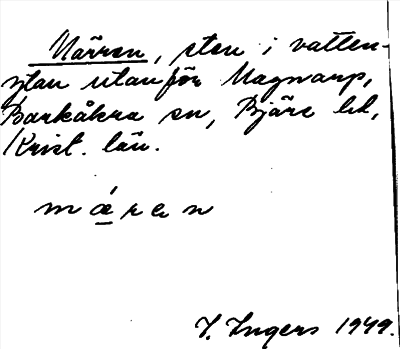 Märren, sten i vatten-
ytan utanför Magnarp,
Barkåkra sn, Bjäre hd,
Krist. län.
mǽren
I. Ingers 1949.